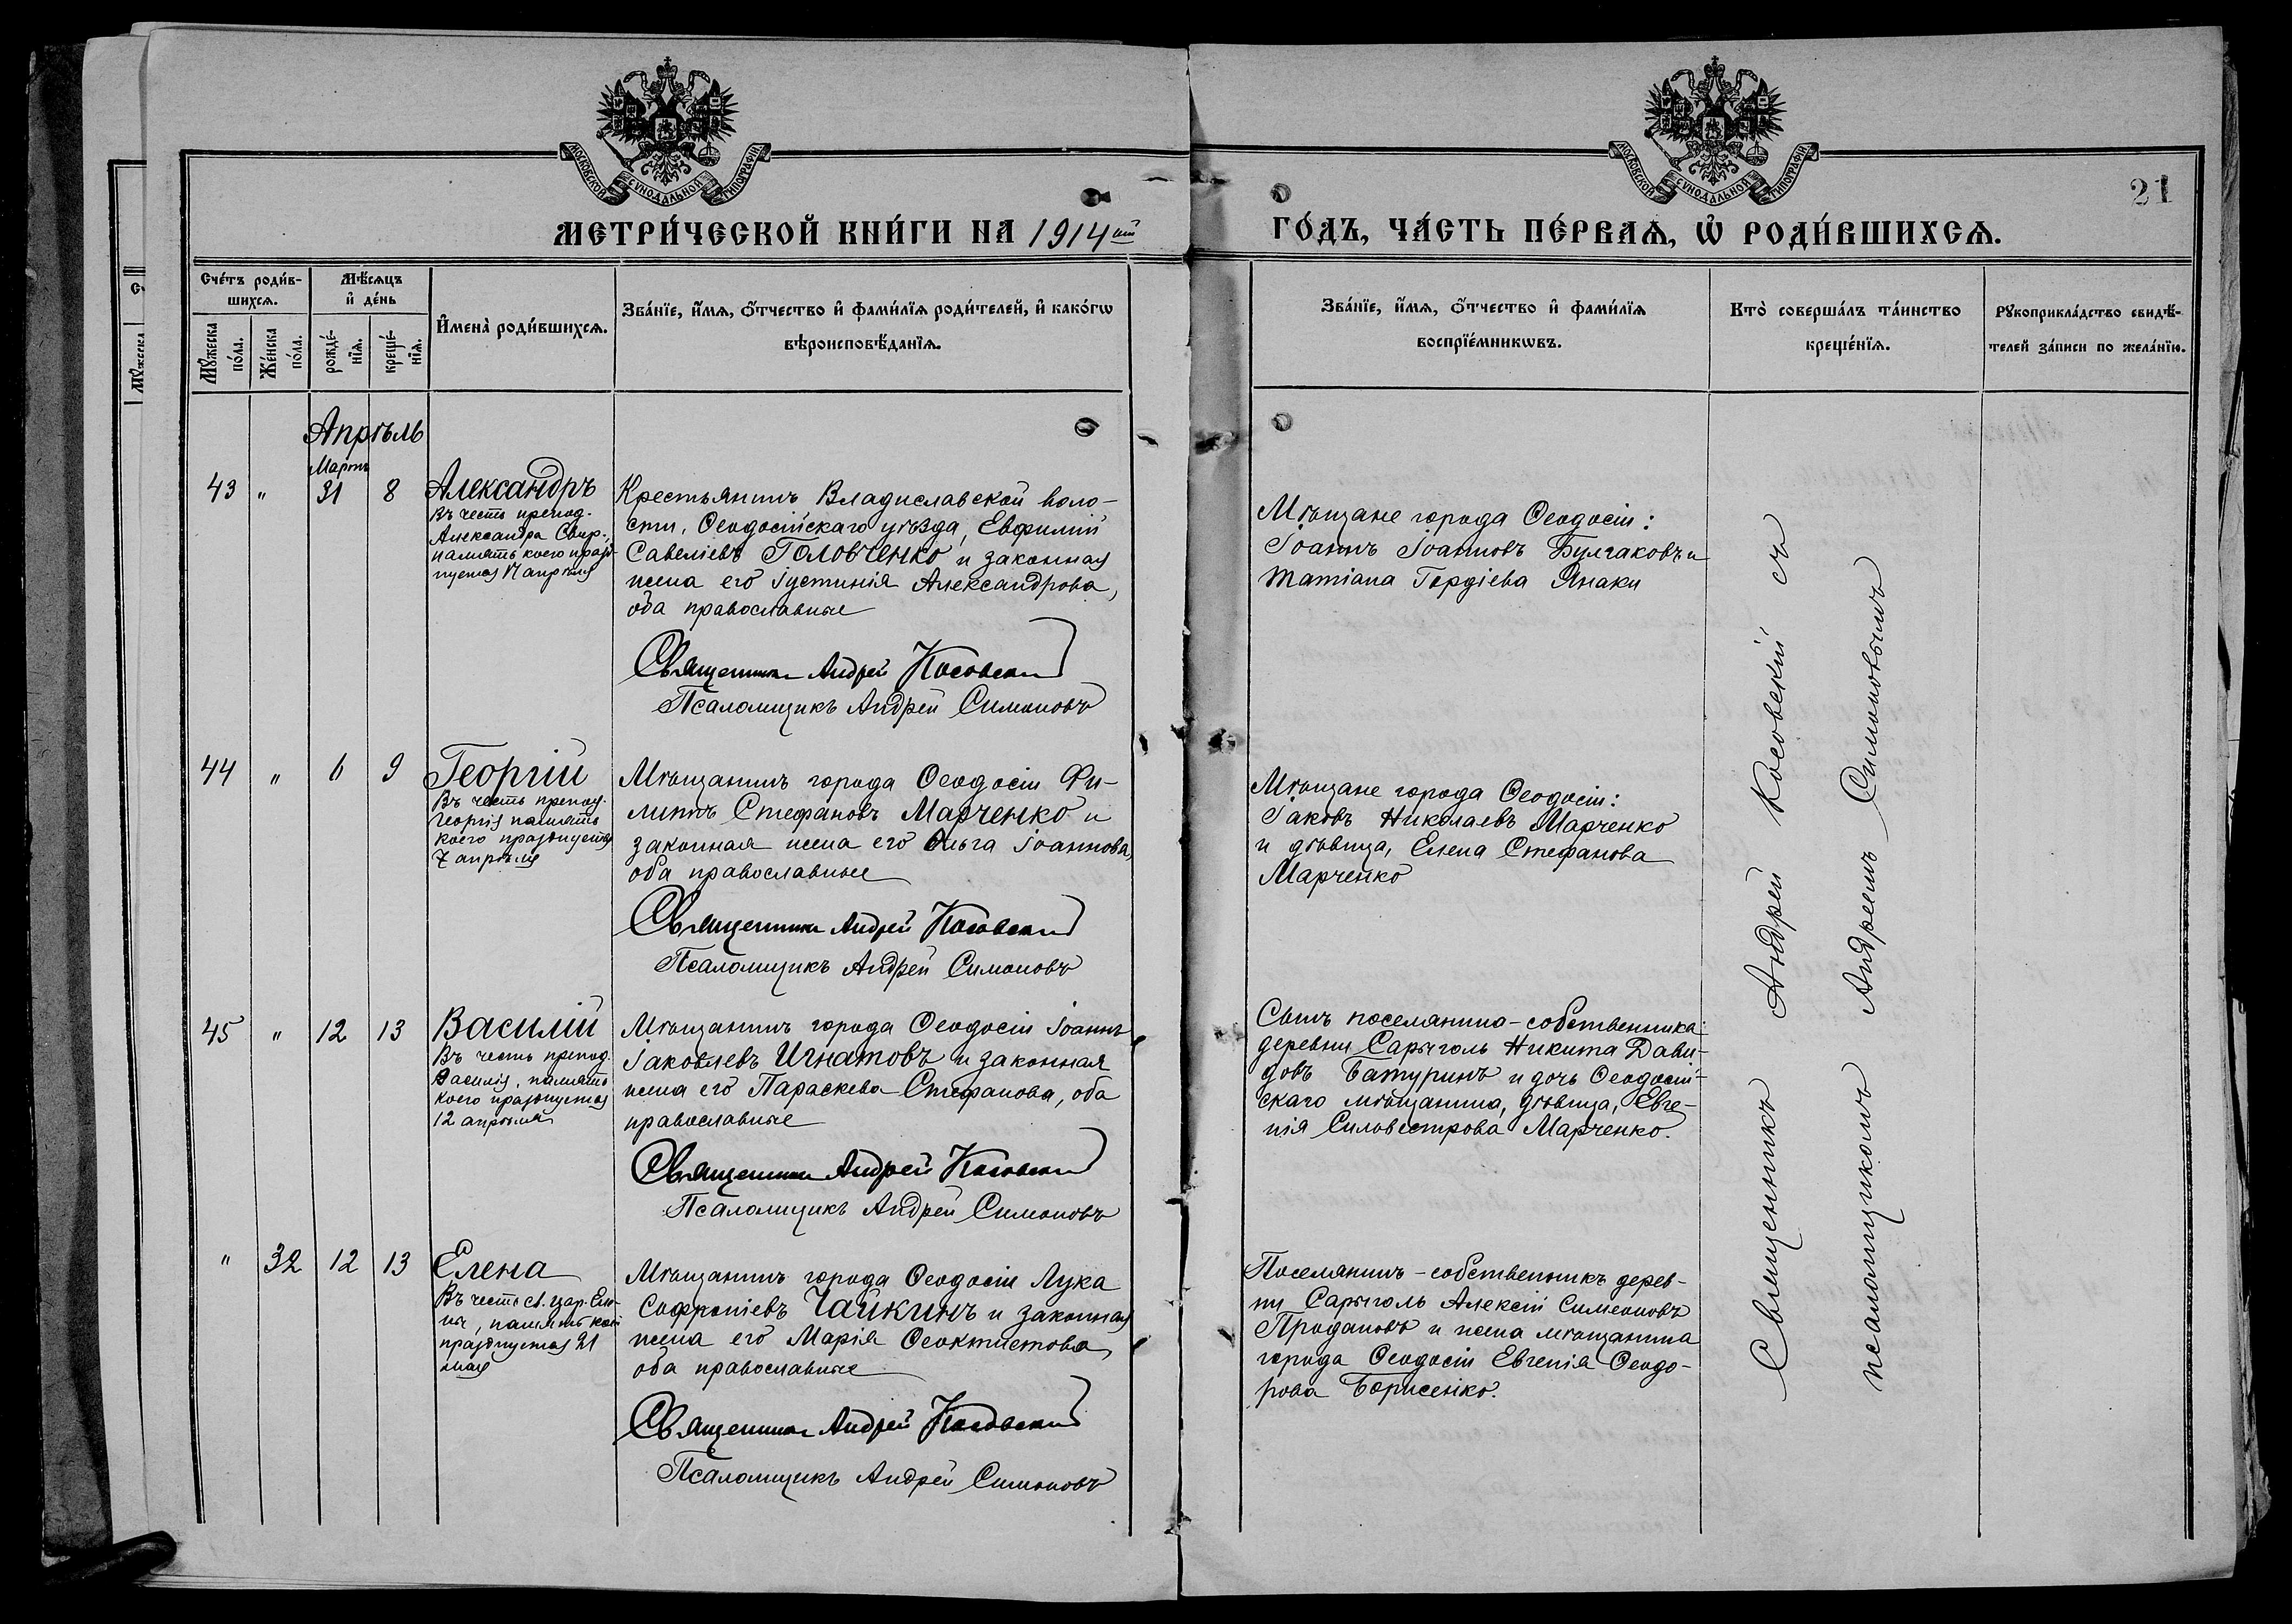 МОСКОВСКОЙ СѴНОДАЛЬНОЙ ТИПОГРАФІИ
МОСКОВСКОЙ СѴНОДАЛЬНОЙ ТИПОГРАФІИ
21
МЕТРИ́ЧЕСКОЙ КНИ́ГИ НА 1914ый
ГО́ДЪ, ЧА́СТЬ ПЕ́РВАѦ, Ѡ҆ РОДИ́ВШИХСѦ.
Сче́тъ роди́в-
шихсѧ.
Мѣ́сѧцъ
и҆ де́нь
Мꙋ́жеска
по́ла.
Же́нска
по́ла.
рожде́-
нїѧ.
креще́-
нїѧ.
И҆мена̀ роди́вшихсѧ.
Зва́нїе, и҆́мѧ, ѻ҆́тчество и҆ фами́лїѧ роди́телей, и҆ како́гѡ
вѣроисповѣ́данїѧ.
Зва́нїе, и҆́мѧ, ѻ҆́тчество и҆ фами́лїѧ
воспрїе́мникѡвъ.
Кто̀ соверша́лъ та́инство
креще́нїѧ.
Рꙋкоприкла́дство свидѣ́-
телей за́писи по жела́нїю.
Апрѣль
Мартъ
43 " 31 8 Александръ
Въ честь препод.
Александра Свир.,
память коего празд-
нуется 17 апрѣля
Крестьянинъ Владиславской воло-
сти, Ѳеодосійскаго уѣзда, Евфимій
Савеліевъ Головченко и законная
жена его Іустинія Александрова,
оба православные
Священникъ Андрей Косовскій
Псаломщикъ Андрей Симоновъ
Мѣщане города Ѳеодосіи:
Іоаннъ Іоанновъ Булгаковъ и
Татіана Гордіева Янаки
44 " 6 9 Георгій
Въ честь препод.
Георгія память
коего празднуется
7 апрѣля
Мѣщанинъ города Ѳеодосіи Фи-
липпъ Стефановъ Марченко и
законная жена его Ольга Іоаннова,
оба православные
Священникъ Андрей Косовскій
Псаломщикъ Андрей Симоновъ
Мѣщане города Ѳеодосіи:
Іаковъ Николаевъ Марченко
и дѣвица, Елена Стефанова
Марченко
45 " 12 13 Василій
Въ честь препод.
Василія, память
коего празднуется
12 апрѣля
Мѣщанинъ города Ѳеодосіи Іоаннъ
Іаковлевъ Игнатовъ и законная
жена его Параскева Стефанова, оба
православные
Священникъ Андрей Косовскій
Псаломщикъ Андрей Симоновъ
Сынъ поселянина-собственника
деревни Сарыголь Никита Дави-
довъ Батуринъ и дочь Ѳеодосій-
скаго мѣщанина, дѣвица, Евге-
нія Силовестрова Марченко.
" 32 12 13 Елена
Въ честь св. цар. Еле-
ны, память коей
празднуется 21
мая
Мѣщанинъ города Ѳеодосіи Лука
Софроніевъ Чайкинъ и законная
жена его Марія Ѳеоктистова,
оба православные
Священникъ Андрей Косовскій
Псаломщикъ Андрей Симоновъ
Поселянинъ-собственникъ дерев-
ни Сарыголь Алексій Симеоновъ
Продановъ и жена мѣщанина
города Ѳеодосіи Евгенія Ѳеодо-
рова Борисенко.
Священникъ Андрей Косовскій съ
псаломщикомъ Андреемъ Симоновымъ